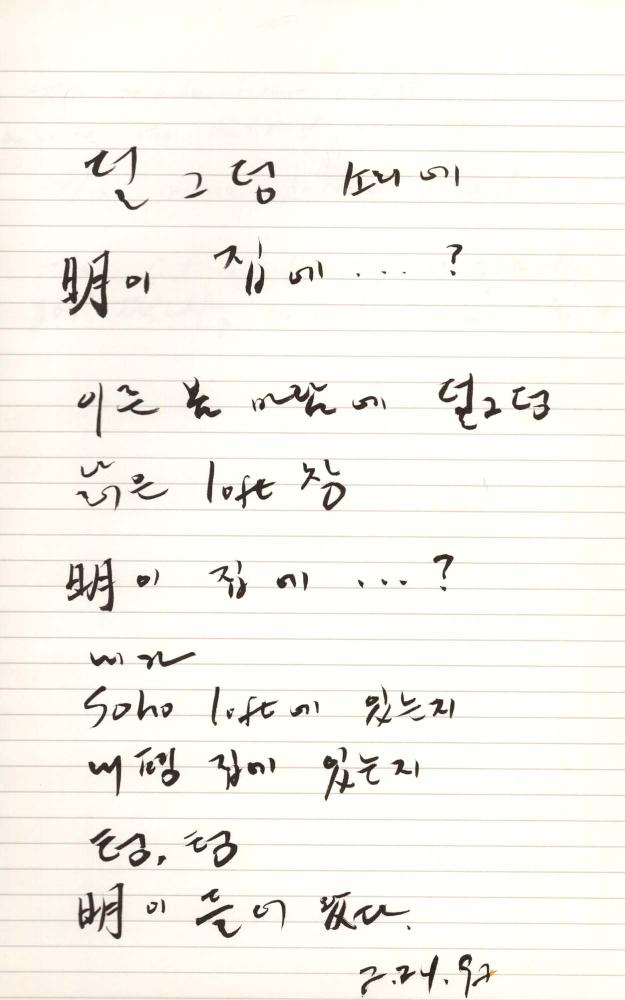 덜그덩 소리에
明이 집에 ... ?
이른 봄 바람에 덜그덩
낡은 loft 창
明이 집에 ... ?
내가
Soho loft에 있는지
내 집에 있는지
텅, 텅
明이 들어 왔다.
2.24.92